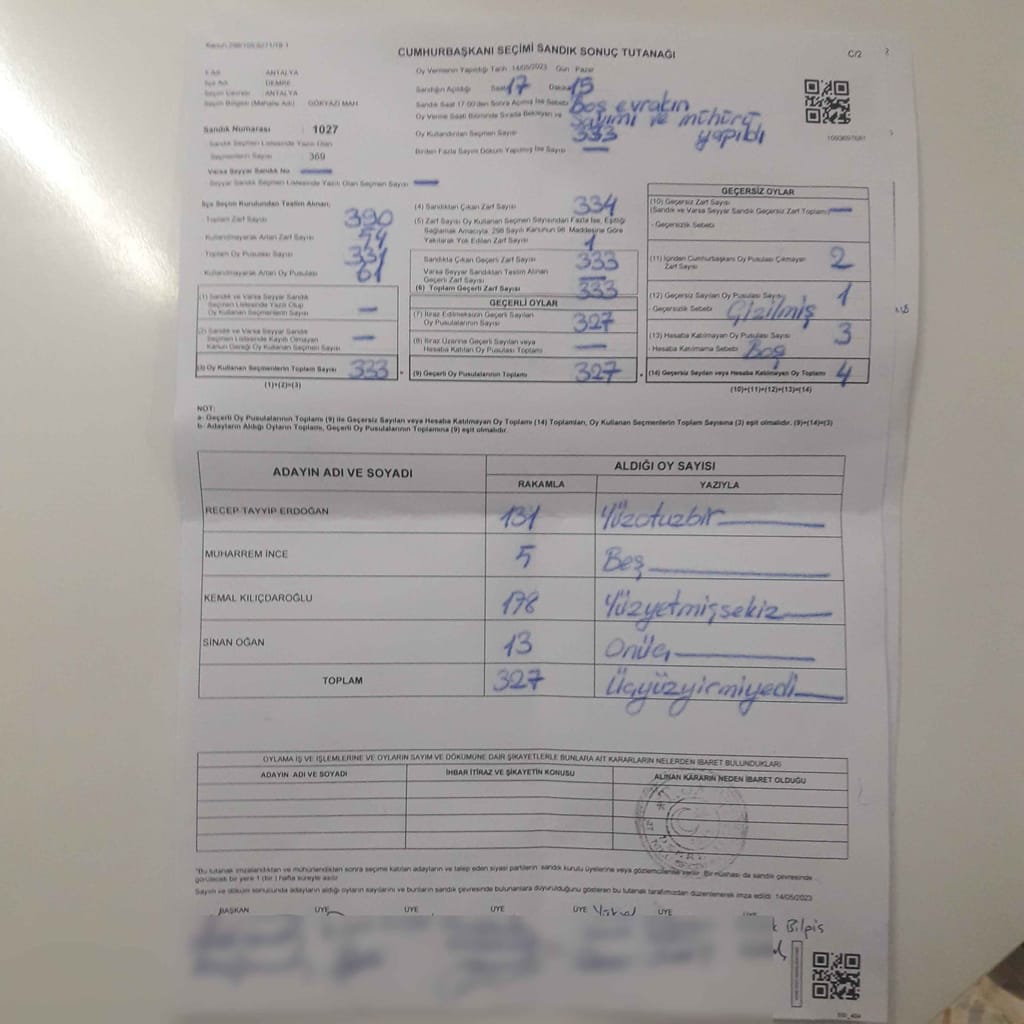 CUMHURBAŞKANI SEÇİMİ SANDIK SONUÇ TUTANAĞI
C/2
İl Adı ANTALYA
İlçe Adı DEMRE
Seçim Çevresi ANTALYA
Seçim Bölgesi (Mahalle Adı) GÖKYAZI MAH
Sandık Numarası 1027
Sandık Seçmen Listesinde Yazılı Olan
Seçmenlerin Sayısı 369
Varsa Seyyar Sandık No
Seyyar Sandık Seçmen Listesinde Yazılı Olan Seçmen Sayısı
Oy Vermenin Yapıldığı Tarih 14/05/2023 Gün Pazar
Sandığın Açıldığı Saat 17 Dakika 15
Sandık Saat 17:00'den Sonra Açılmış İse Sebebi boş evrakın
sayımı ve mühürü
yapıldı
Oy Verme Saati Bitiminde Sırada Bekleyen ve
Oy Kullandırılan Seçmen Sayısı 333
Birden Fazla Sayım Döküm Yapılmış İse Sayısı
İlçe Seçim Kurulundan Teslim Alınan;
Toplam Zarf Sayısı 390
Kullanılmayarak Artan Zarf Sayısı
Toplam Oy Pusulası Sayısı
Kullanılmayarak Artan Oy Pusulası 61
(1) Sandık ve Varsa Seyyar Sandık
Seçmen Listesinde Yazılı Olup
Oy Kullanan Seçmenlerin Sayısı
(2) Sandık ve Varsa Seyyar Sandık
Seçmen Listesinde Kayıtlı Olmayan
Kanun Gereği Oy Kullanan Seçmen Sayısı
(3) Oy Kullanan Seçmenlerin Toplam Sayısı 333
(1)+(2)=(3)
(4) Sandıktan Çıkan Zarf Sayısı 334
(5) Zarf Sayısı Oy Kullanan Seçmen Sayısından Fazla İse, Eşitliği
Sağlamak Amacıyla, 298 Sayılı Kanunun 98. Maddesine Göre
Yakılarak Yok Edilen Zarf Sayısı 1
Sandıkta Çıkan Geçerli Zarf Sayısı 333
Varsa Seyyar Sandıktan Teslim Alınan
Geçerli Zarf Sayısı
(6) Toplam Geçerli Zarf Sayısı 333
GEÇERLİ OYLAR
(7) İtiraz Edilmeksizin Geçerli Sayılan
Oy Pusulalarının Sayısı 327
(8) İtiraz Üzerine Geçerli Sayılan veya
Hesaba Katılan Oy Pusulası Toplamı
(9) Geçerli Oy Pusulalarının Toplamı 327
GEÇERSİZ OYLAR
(10) Geçersiz Zarf Sayısı
(Sandık ve Varsa Seyyar Sandık Geçersiz Zarf Toplamı)
- Geçersizlik Sebebi
(11) İçinden Cumhurbaşkanı Oy Pusulası Çıkmayan
Zarf Sayısı 2
(12) Geçersiz Sayılan Oy Pusulası Sayısı 1
- Geçersizlik Sebebi Çizilmiş
(13) Hesaba Katılmayan Oy Pusulası Sayısı 3
- Hesaba Katılmama Sebebi Boş
(14) Geçersiz Sayılan veya Hesaba Katılmayan Oy Toplamı 4
(10)+(11)+(12)+(13)=(14)
NOT:
a- Geçerli Oy Pusulalarının Toplamı (9) ile Geçersiz Sayılan veya Hesaba Katılmayan Oy Toplamı (14) Toplamları, Oy Kullanan Seçmenlerin Toplam Sayısına (3) eşit olmalıdır. (9)+(14)=(3)
b- Adayların Aldığı Oyların Toplamı, Geçerli Oy Pusulalarının Toplamına (9) eşit olmalıdır.
ADAYIN ADI VE SOYADI ALDIĞI OY SAYISI
RAKAMLA YAZIYLA
RECEP TAYYİP ERDOĞAN 131 Yüzotuzbir
MUHARREM İNCE 5 Beş
KEMAL KILIÇDAROĞLU 178 Yüzyetmişsekiz
SİNAN OĞAN 13 Onüç
TOPLAM 327 Üçyüzyirmiyedi
OYLAMA İŞ VE İŞLEMLERİNE VE OYLARIN SAYIM VE DÖKÜMÜNE DAİR ŞİKAYETLERLE BUNLARA AİT KARARLARIN NELERDEN İBARET BULUNDUKLARI
ADAYIN ADI VE SOYADI İHBAR İTİRAZ VE ŞİKAYETİN KONUSU ALINAN KARARIN NEDEN İBARET OLDUĞU
*Bu tutanak imzalandıktan ve mühürlendikten sonra seçime katılan adayların ve talep eden siyasi partilerin sandık kurulu üyelerine veya gözlemcilerine verilir. Bir nüshası da sandık çevresinde
görülecek bir yere 1 (bir) hafta süreyle asılır.
Sayım ve döküm sonunda adayların aldığı oyların sayılarını ve bunların sandık çevresinde bulunanlara duyurulduğunu gösteren bu tutanak tarafımızdan düzenlenerek imza edildi. 14/05/2023
BAŞKAN ÜYE ÜYE ÜYE ÜYE ÜYE ÜYE